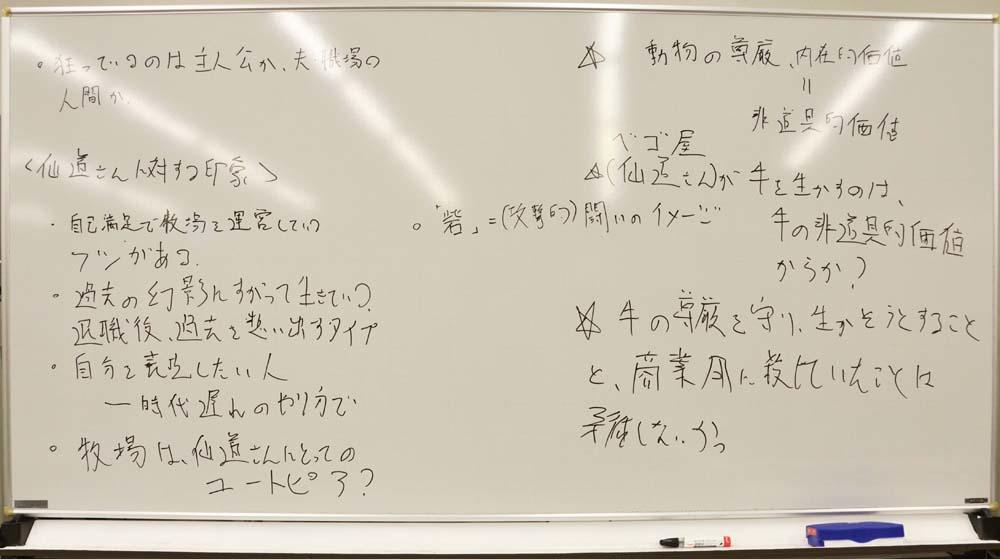 。狂っているのは主人公か、夫・職場の
人間か。
<仙道さんに対する印象>
・自己満足で牧場を運営している
フシがある。
・過去の幻影にすがって生きている?
退職後、過去を想い出すタイプ
・自分を表現したい人
ー時代遅れのやり方で
・牧場は、仙道さんにとっての
ユートピア?
。「砦」=(攻撃的)闘いのイメージ
☆ 動物の尊厳、内在的価値
=
非道具的価値
ベゴ屋
☆(仙道さん)が牛を生かすのは、
牛の非道具的価値
からか?
☆ 牛の尊厳を守り、生かそうとすること
と、商業用に殺していたことは
矛盾しないか。